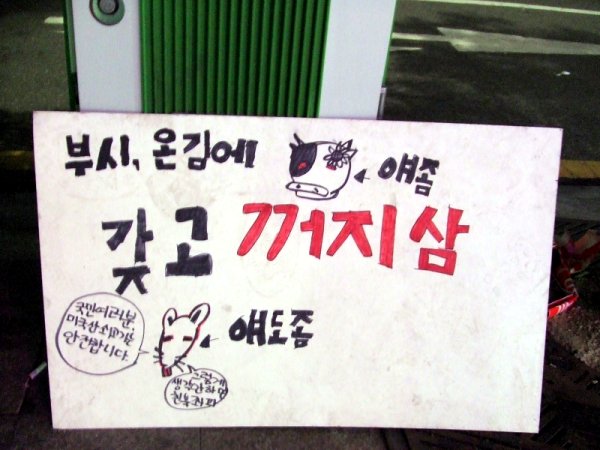 부시, 온김에
얘좀
갖고 꺼지삼
얘도좀
국민여러분,
미국산 쇠고기는
안전합니다.
그렇게
생각안하면
친북좌파